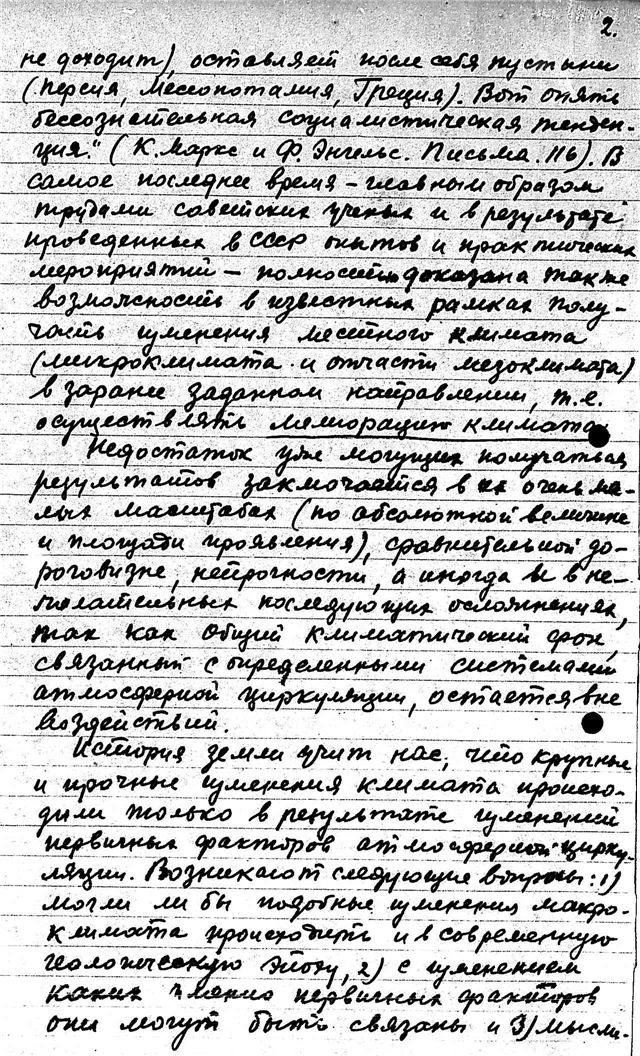 2.
не доходит), оставляет после себя пустыни
(Персия, Месопотамия, Греция). Вот опять
бессознательная социалистическая тенден-
ция." (К. Маркс и Ф. Энгельс. Письма. 116). В
самое последнее время – главным образом
трудами советских ученых и в результате
проведенных в СССР опытов и практических
мероприятий – полностью доказана также
возможность в известных рамках полу-
чать изменения местного климата
(микроклимата и отчасти мезоклимата)
в заранее заданном направлении, т.е.
осуществлять мелиорацию климата.
Недостаток уже могущих получаться
результатов заключается в их очень ма-
лых масштабах (по абсолютной величине
и площади проявления), сравнительной до-
роговизне, непрочности, а иногда и в не-
желательных последующих осложнениях,
так как общий климатический фон,
связанный с определенными системами
атмосферной циркуляции, остается вне
воздействий.
История земли учит нас, что крупные
и прочные изменения климата происхо-
дили только в результате изменений
первичных факторов атмосферной цирку-
ляции. Возникают следующие вопросы: 1)
могли ли бы подобные изменения макро-
климата происходить и в современную
геологическую эпоху, 2) с изменением
каких именно первичных факторов
они могут быть связаны и 3) мысли-